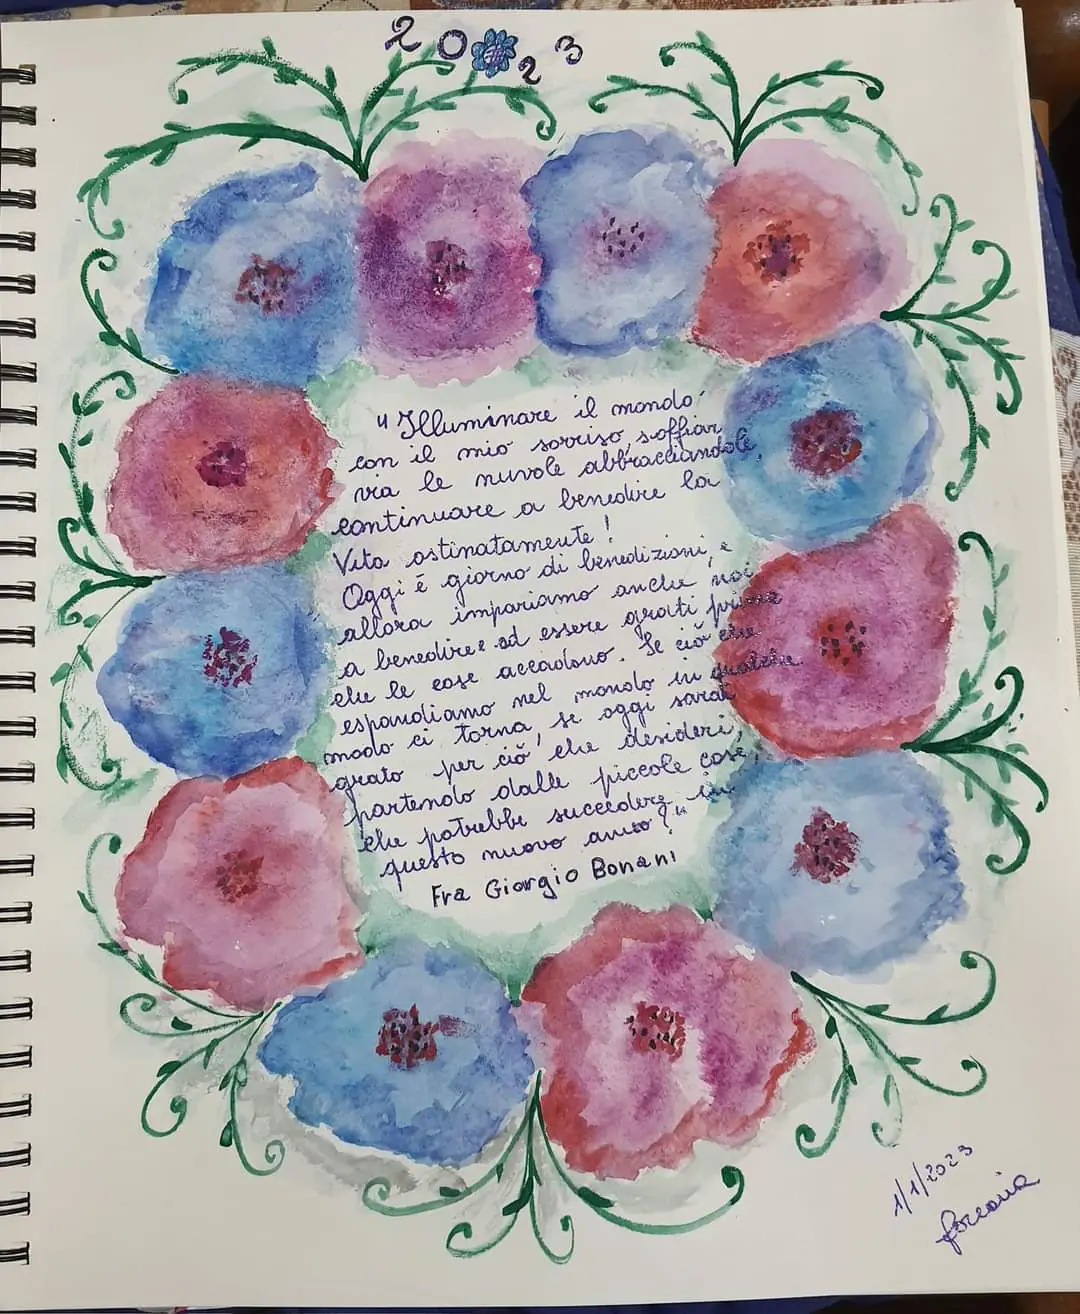 2023
"Illuminare il mondo
con il mio sorriso, soffiar
via le nuvole abbracciandole,
continuare a benedire la
Vita ostinatamente!
Oggi è giorno di benedizioni, e
allora impariamo anche noi
a benedire e ad essere grati prima
che le cose accadono. Se ciò che
espandiamo nel mondo in qualche
modo ci torna, se oggi sarai
grato per ciò che desideri,
partendo dalle piccole cose,
che potrebbe succedere in
questo nuovo anno?"
Fra Giorgio Bonani
1/1/2023